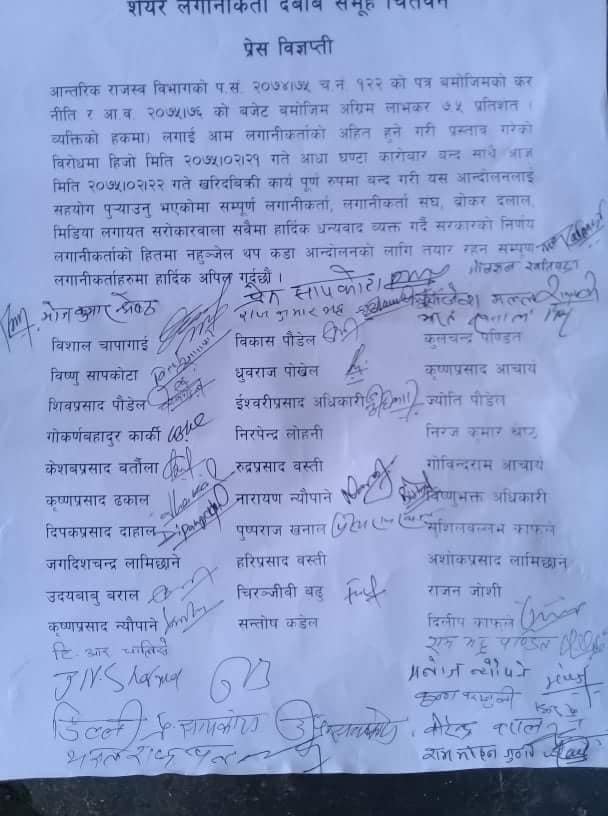 शेयर लगानीकर्ता दबाब समूह चितवन
प्रेस विज्ञप्ती
आन्तरिक राजस्व विभागको प.सं. २०७४।७५ च.नं. १२२ को पत्र बमोजिमको कर
नीति र आ.व. २०७५।७६ को बजेट बमोजिम अग्रिम लाभकर ७.५ प्रतिशत ।
व्यक्तिको हकमा) लगाई आम लगानीकर्ताको अहित हुने गरी प्रस्ताव गरेको
विरोधमा हिजो मिति २०७५।०२।२१ गते आधा घण्टा कारोवार बन्द साथै आज
मिति २०७५।०२।२२ गते खरिदबिक्री कार्य पूर्ण रुपमा बन्द गरी यस आन्दोलनलाई
सहयोग पुऱ्याउनु भएकोमा सम्पूर्ण लगानीकर्ता, लगानीकर्ता संघ, ब्रोकर दलाल,
मिडिया लगायत सरोकारवाला सबैमा हार्दिक धन्यवाद व्यक्त गर्दै सरकारको निर्णय
लगानीकर्ताको हितमा नहुञ्जेल थप कडा आन्दोलनको लागि तयार रहन सम्पूर्ण
लगानीकर्ताहरुमा हार्दिक अपिल गर्दछौं ।
चैत सापकोटा
भोजकुमार श्रेष्ठ
विशाल चापागाई विकास पौडेल कुलचन्द्र पण्डित
विष्णु सापकोटा धुवराज पोखेल कृष्णप्रसाद आचार्य
शिवप्रसाद पौडेल ईश्वरीप्रसाद अधिकारी ज्योति पौडेल
गोकर्णबहादुर कार्की निरपेन्द्र लोहनी निरज कुमार श्रेष्ठ
केशबप्रसाद बर्तौला रुद्रप्रसाद वस्ती गोविन्दराम आचार्य
कृष्णप्रसाद ढकाल नारायण न्यौपाने विष्णुभक्त अधिकारी
दिपकप्रसाद दाहाल पुष्पराज खनाल सुशिलवल्लभ काफले
जगदिशचन्द्र लामिछाने हरिप्रसाद वस्ती अशोकप्रसाद लामिछाने
उदयबाबु बराल चिरञ्जीवी बडु राजन जोशी
कृष्णप्रसाद न्यौपाने सन्तोष कडेल दिलीप काफले
J.N. Sharma
डिल्ली प्र. सापकोटा